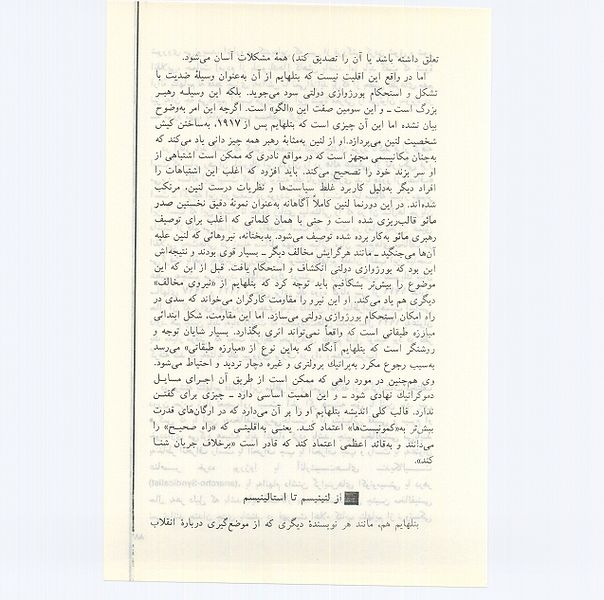 تعلق داشته باشد یا آن را تصدیق کند) همهٔ مشکلات آسان می‌شود.
اما در واقع این اقلیت نیست که بتلهایم از آن به‌عنوان وسیلهٔ ضدیت با
تشکل و استحکام بورژوازی دولتی سود می‌جوید. بلکه این وسیله رهبر
بزرگ است ـ و این سومین صفت این «الگو» است. اگرچه این امر به‌وضوح
بیان نشده اما این آن چیزی است که بتلهایم پس از ۱۹۱۷، به‌ساختن کیش
شخصیت لنین می‌پردازد. او از لنین به‌مثابهٔ رهبر همه چیز دانی یاد می‌کند که
به‌چنان مکانیسمی مجهز است که در مواقع نادری که ممکن است اشتباهی از
او سر بزند خود را تصحیح می‌کند. باید افزود که اغلب این اشتباهات را
افراد دیگر به‌دلیل کاربرد غلط سیاست‌ها و نظریات درست لنین، مرتکب
شده‌اند. در این دورنما لنین کاملاً آگاهانه به‌عنوان نمونهٔ دقیق نخستین صدر
مائو قالب‌ریزی شده است و حتی با همان کلماتی که اغلب برای توصیف
رهبری مائو به‌کار برده شده توصیف می‌شود. بدبختانه، نیروهائی که لنین علیه
آن‌ها می‌جنگید ـ مانند هر گرایش مخالف دیگر ـ بسیار قوی بودند و نتیجه‌اش
این بود که بورژوازی دولتی انکشاف و استحکام یافت. قبل از این که این
موضوع را بیش‌تر بشکافیم باید توجه کرد که بتلهایم از «نیروی مخالف»
دیگری هم یاد می‌کند. او این نیرو را مقاومت کارگران می‌خواند که سدی در
راه امکان استحکام بورژوازی دولتی می‌سازد. اما این مقاومت، شکل ابتدائی
مبارزه طبقاتی است که واقعاً نمی‌تواند اثری بگذارد. بسیار شایان توجه و
روشنگر است که بتلهایم آنگاه که به‌این نوع از «مبارزه طبقاتی» می‌رسد
به‌سبب رجوع مکرر به‌پراتیك پرولتری و غیره دچار تردید و احتیاط می‌شود.
وی هم‌چنین در مورد راهی که ممکن است از طریق آن اجرای مسایل
دموکراتیك نهادی شود ـ و این اهمیت اساسی دارد ـ چیزی برای گفتن
ندارد. قالب کلی اندیشه بتلهایم او را بر آن می‌دارد که در ارگان‌های قدرت
بیش‌تر به«کمونیست‌ها» اعتماد کند. یعنی به‌اقلیتی که «راه صحیح» را
می‌دانند و به‌قائد اعظمی اعتماد کند که قادر است «برخلاف جریان شنا
کند».
از لنینیسم تا استالینیسم
بتلهایم هم، مانند هر نویسندهٔ دیگری که از موضع‌گیری دربارهٔ انقلاب